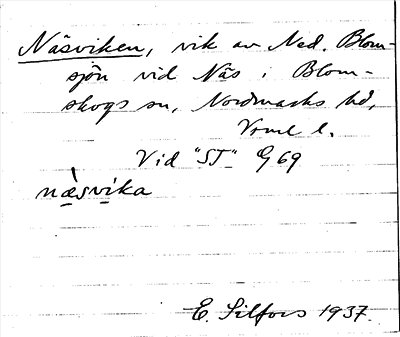 Näsviken, vik av Ned. Blom-
sjön vid Näs i Blom-
skogs sn, Nordmarks hd,
Vrml l.
Vid "ST" G 69
næ̀svika
E. Silfors 1937.